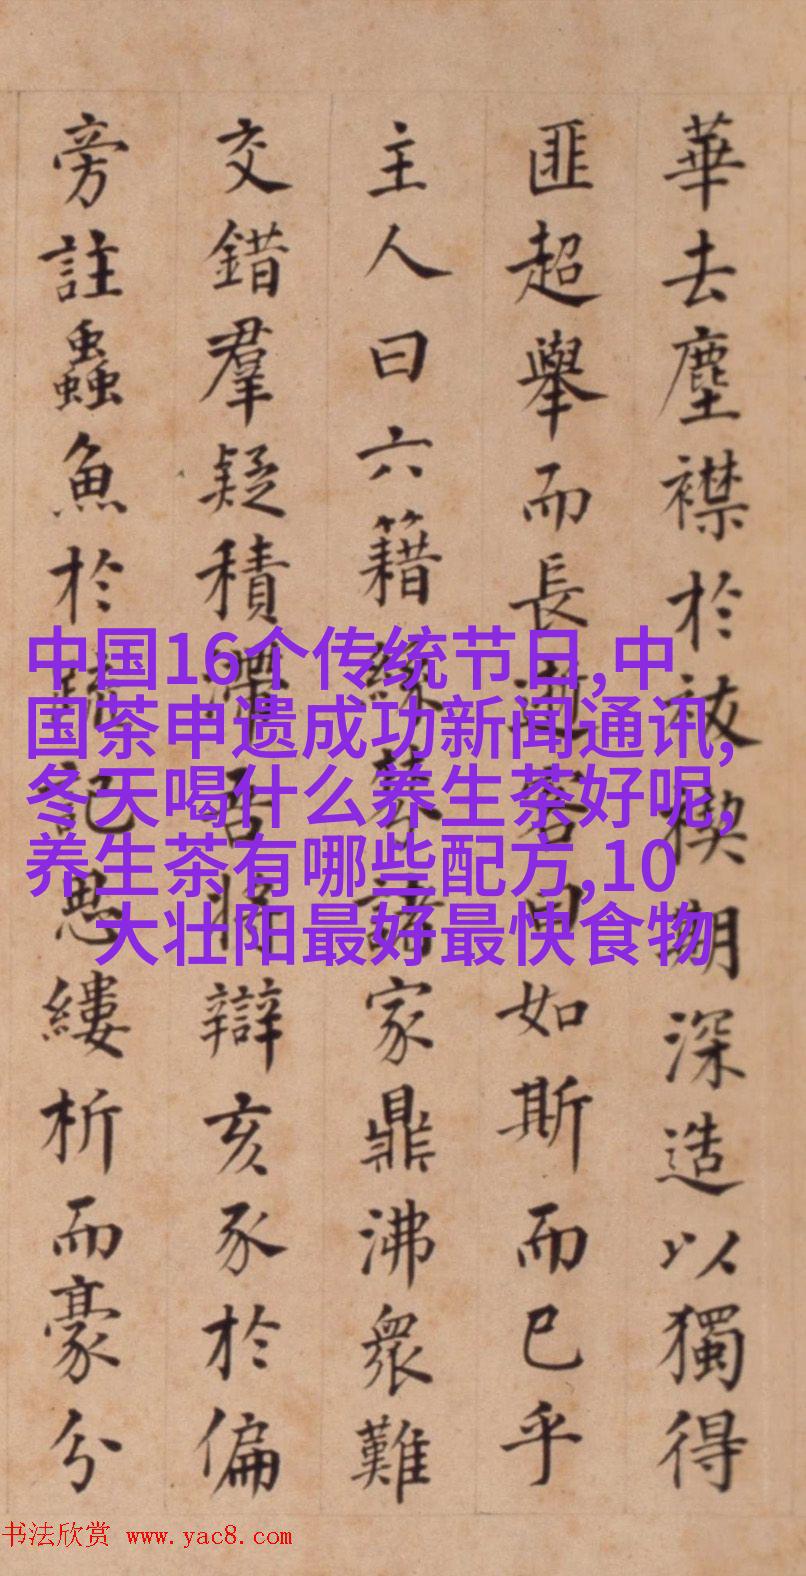 華去塵襟於祓禊期深造以獨得
匪超舉而長遊客曰如斯而已乎
主人曰六籍諸家鼎沸衆難
交錯羣疑積否將辯亥豕於偏
旁註蟲魚於疏記思縷析而豪分
中国16个传统节日,中
国茶申遗成功新闻通讯,
冬天喝什么养生茶好呢,
养生茶有哪些配方,10
大壮阳最好最快食物
书法欣赏 www.yac8.com